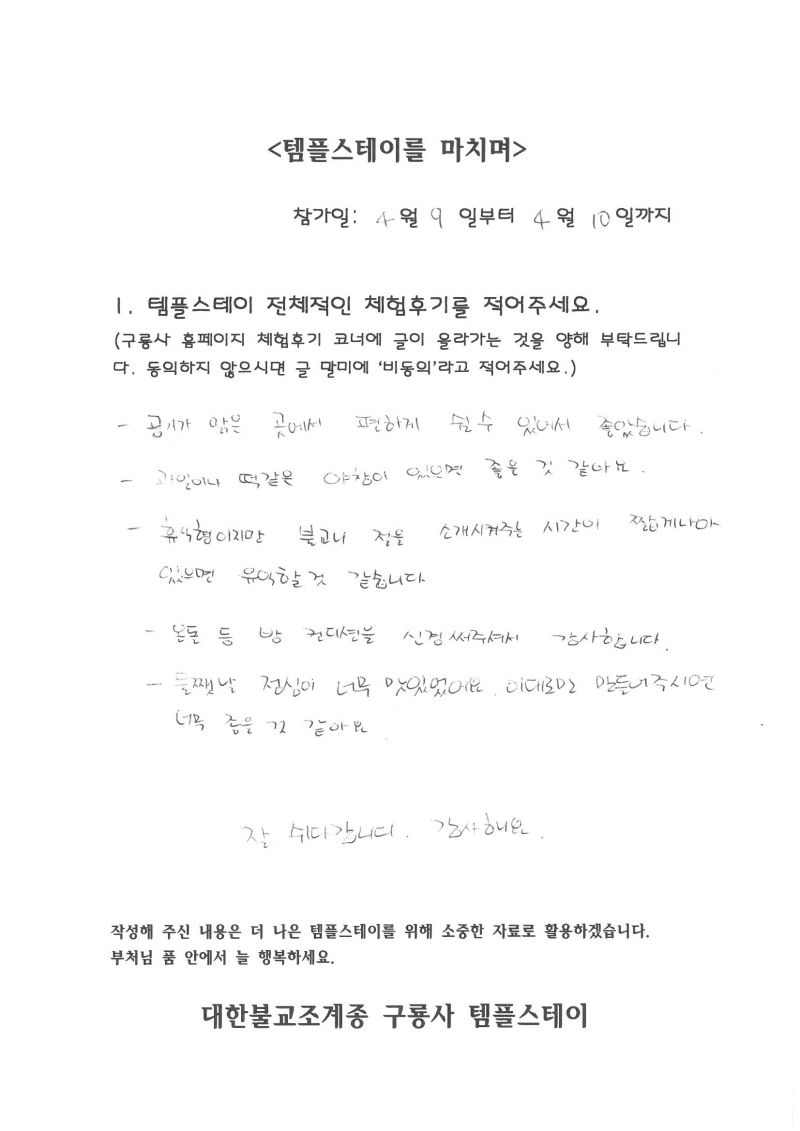 <템플스테이를 마치며>
참가일: 4월 9 일부터 4월 10일까지
1. 템플스테이 전체적인 체험후기를 적어주세요.
(구룡사 홈페이지 체험후기 코너에 글이 올라가는 것을 양해 부탁드립니
다. 동의하지 않으시면 글 말미에 '비동의'라고 적어주세요.)
- 공기가 맑은 곳에서 편하게 쉴 수 있어서 좋았습니다.
- 과일이나 떡같은 야참이 있으면 좋은 것 같아요.
- 휴식형이지만 불교니 절을 소개시켜주는 시간이 짧게나마
있으면 유익할 것 같습니다
- 온돌 등 방 컨디션을 신경써주셔서 감사합니다.
- 둘쨋날 점심이 너무 맛있었어요. 이대로만 만들어주시면
너무 좋은 것 같아요
잘 쉬다갑니다. 감사해요.
작성해 주신 내용은 더 나은 템플스테이를 위해 소중한 자료로 활용하겠습니다.
부처님 품 안에서 늘 행복하세요.
대한불교조계종 구룡사 템플스테이